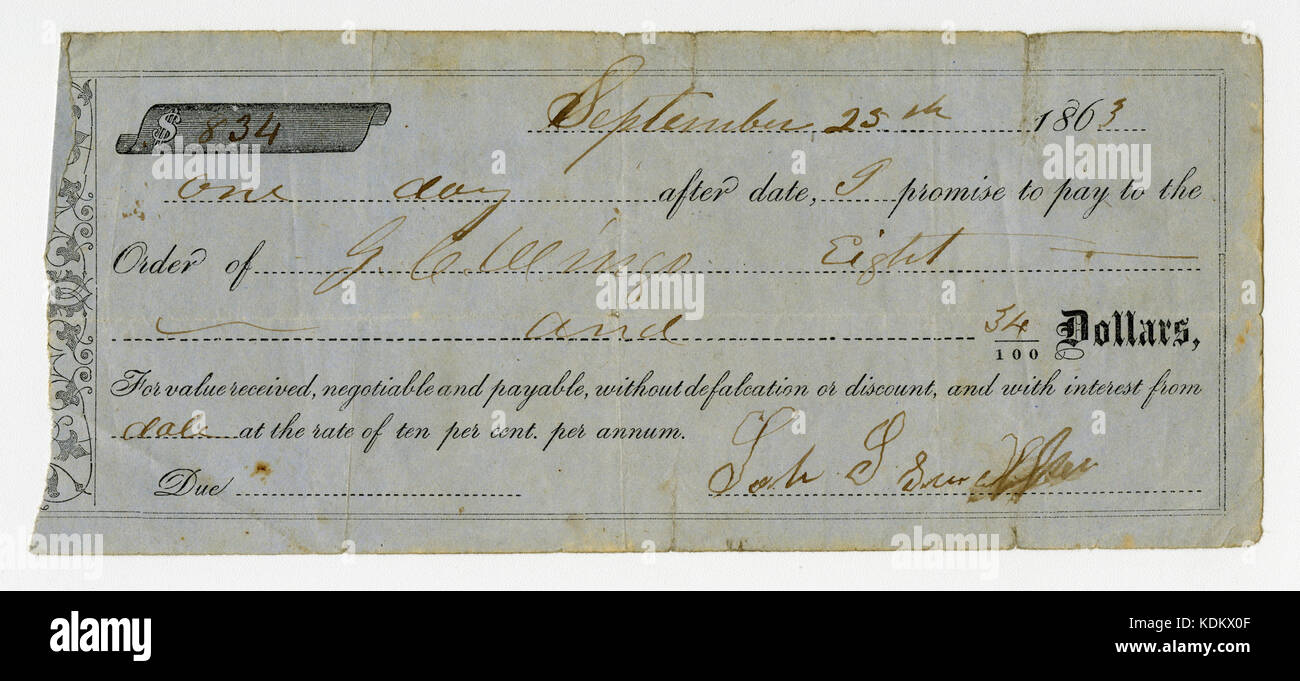 $ 834 September 25th 1863
One day after date, I promise to pay to the
Order of G. C. Mingo Eight
and 34/100 Dollars,
For value received, negotiable and payable, without defalcation or discount, and with interest from
date at the rate of ten per cent. per annum.
Due
alamy
alamy
a
a
alamy
Image ID: KDKX0F
www.alamy.com